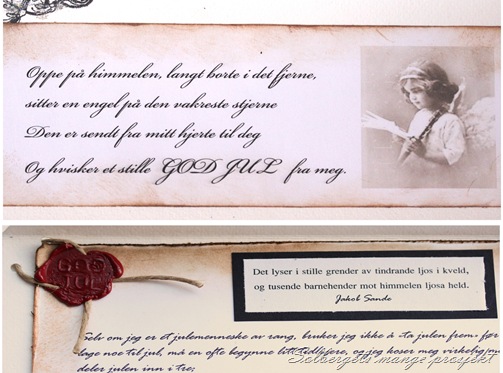 Oppe på himmelen, langt borte i det fjerne,
sitter en engel på den vakreste stjerne
Den er sendt fra mitt hjerte til deg
Og hvisker et stille GOD JUL fra meg.
GOD
JUL
Det lyser i stille grender av tindrande ljos i kveld,
og tusende barnehender mot himmelen ljosa held.
Jakob Sande
Selv om jeg er et julemenneske av rang, bruker jeg ikke å ta julen frem før
lage noe til jul, må en ofte begynne litt tidligere, og jeg koser meg virkelig
deler julen inn i tre;
Solbergets mange prosjekt